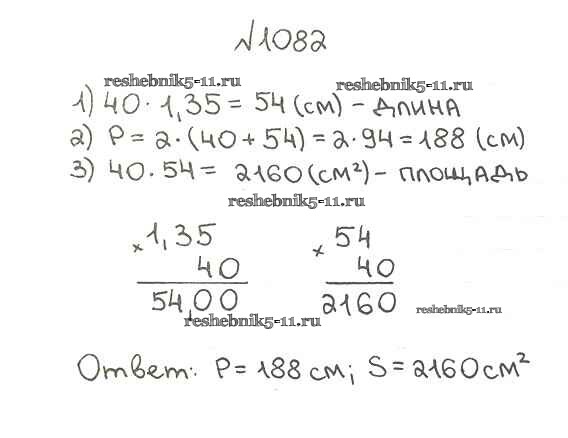 №1082
reshebnik5-11.ru reshebnik5-11.ru
1) 40 · 1,35 = 54 (см) – длина
2) P = 2·(40 + 54) = 2·94 = 188 (см)
3) 40·54 = 2160 (см²) – площадь
reshebnik5-11.ru
× 1,35 × 54
40 40
54,00 2160
reshebnik5-11.ru reshebnik5-11.ru
Ответ: P = 188 см; S = 2160 см²